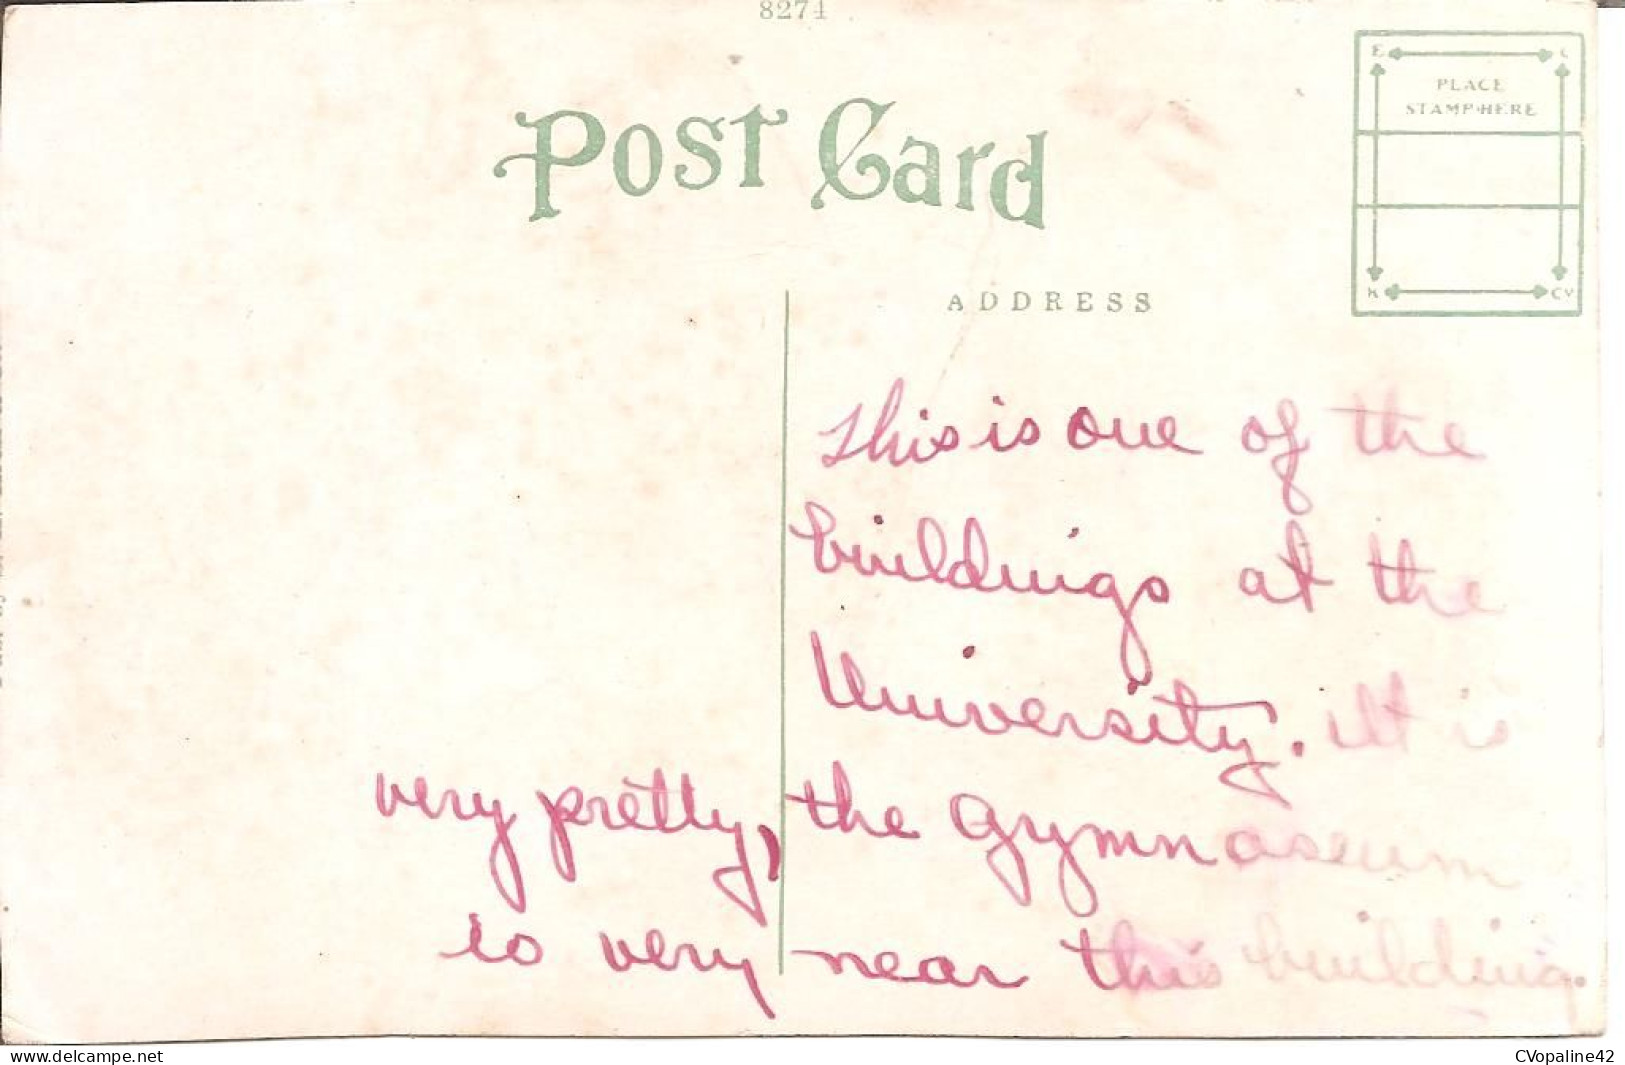 8274
Post Card
E C
PLACE
STAMP·HERE
K CY
ADDRESS
This is one of the
buildings at the
University. It is
very pretty, the Gymnaseum
is very near this building.
www.delcampe.net
CVopaline42